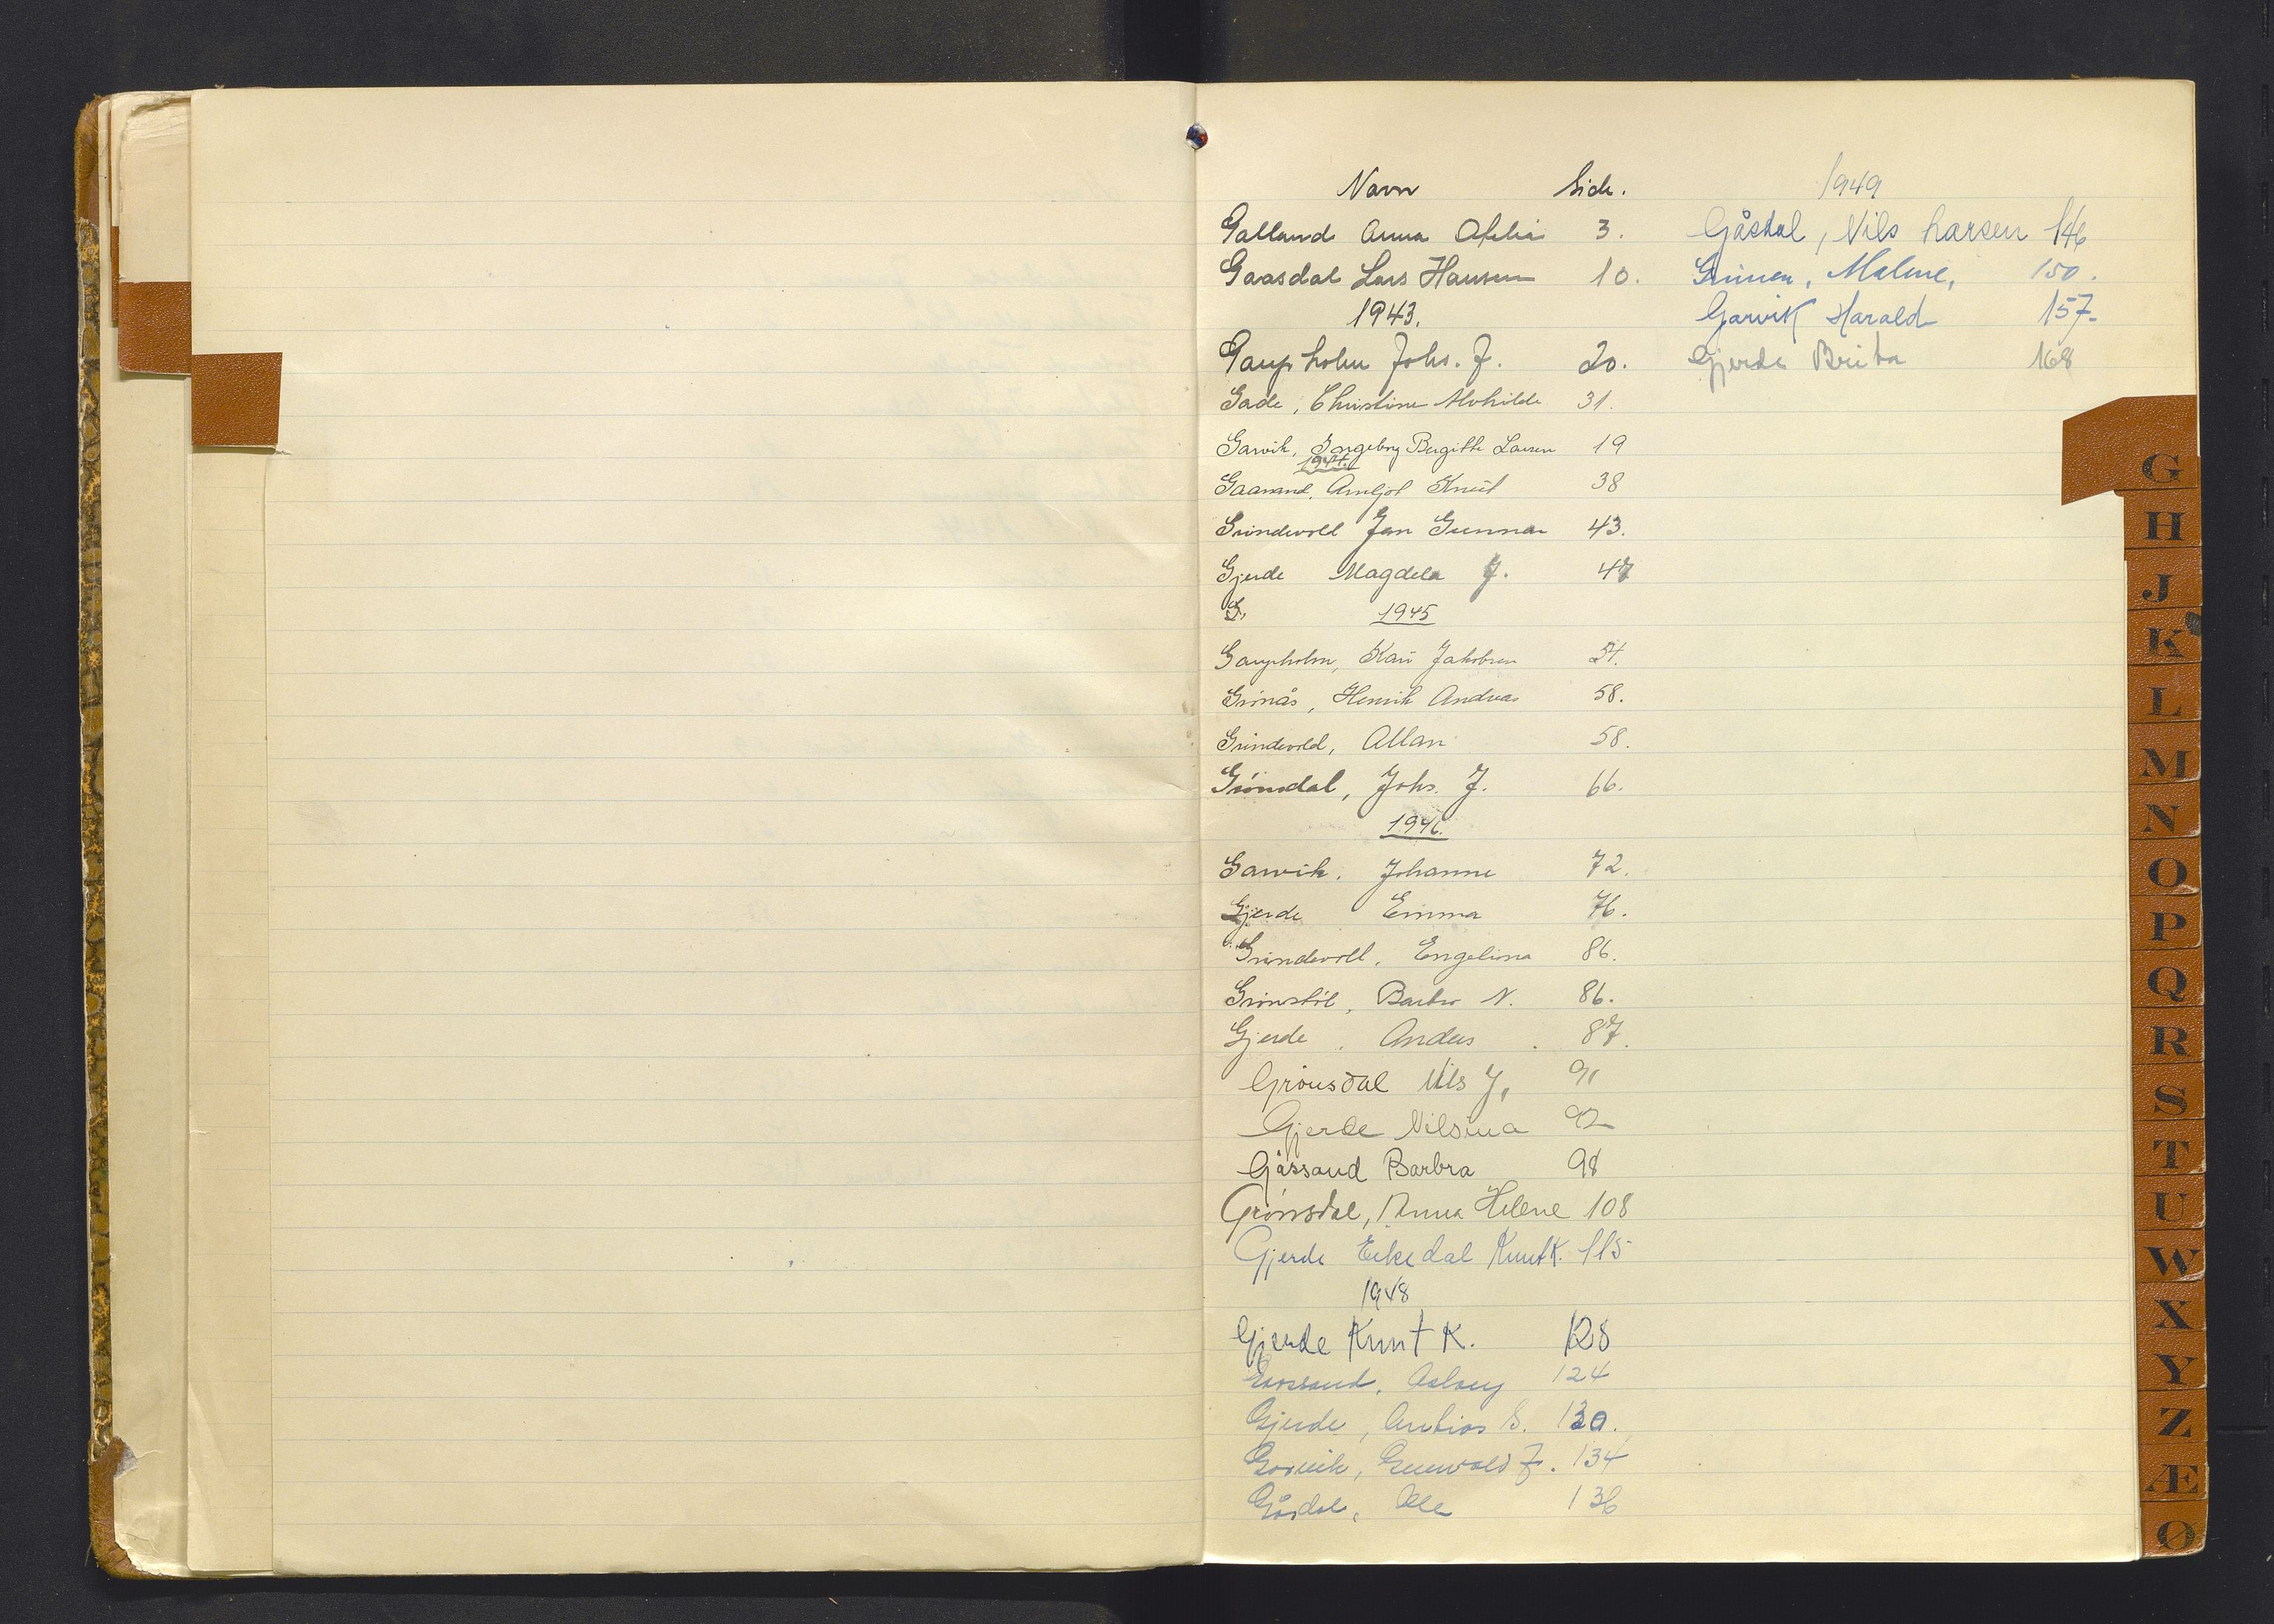 Navn Side.
Galland Anna Ofelia 3.
Gaasdal Lars Hansen 10.
1943.
Gaupholm Johs. J. 20.
Gade, Christine Mathilde 31.
Garvik, Ingeborg Bergitte Larsen 19
1944.
Gaasand, Arnljot Knut 38
Grindevold Jan Gunnar 43.
Gjerde Magdela J. 47
G. 1945
Gaupholm, Kari Jakobsen 54.
Grønås, Henrik Andreas 58.
Grindevold, Allan 58.
Grönsdal, Johs. J. 66.
1946.
Garvik, Johanne 72.
Gjerde Emma 76.
Grindevoll, Engelina 86.
Grönstöl, Barbro N. 86.
Gjerde, Anders 87.
Grönsdal Nils J, 91
Gjerde Nilsina 92
Gåssand Barbra 98
Grønsdal, Anna Helene 108
Gjerde Eikedal Knut K. 115
1948
Gjerde Knut K. 128
Gaassand, Aslaug 124
Gjerde, S. 130.
Garvik, J. 134
Gåsdal, Ole 136
1949
Gåsdal, Nils Larsen 146
Malene, 150.
Garvik Harald 157.
Gjerde Brita 168
G
H
J
K
L
M
N
O
P
Q
R
S
T
U
W
X
Y
Z
Æ
Ø